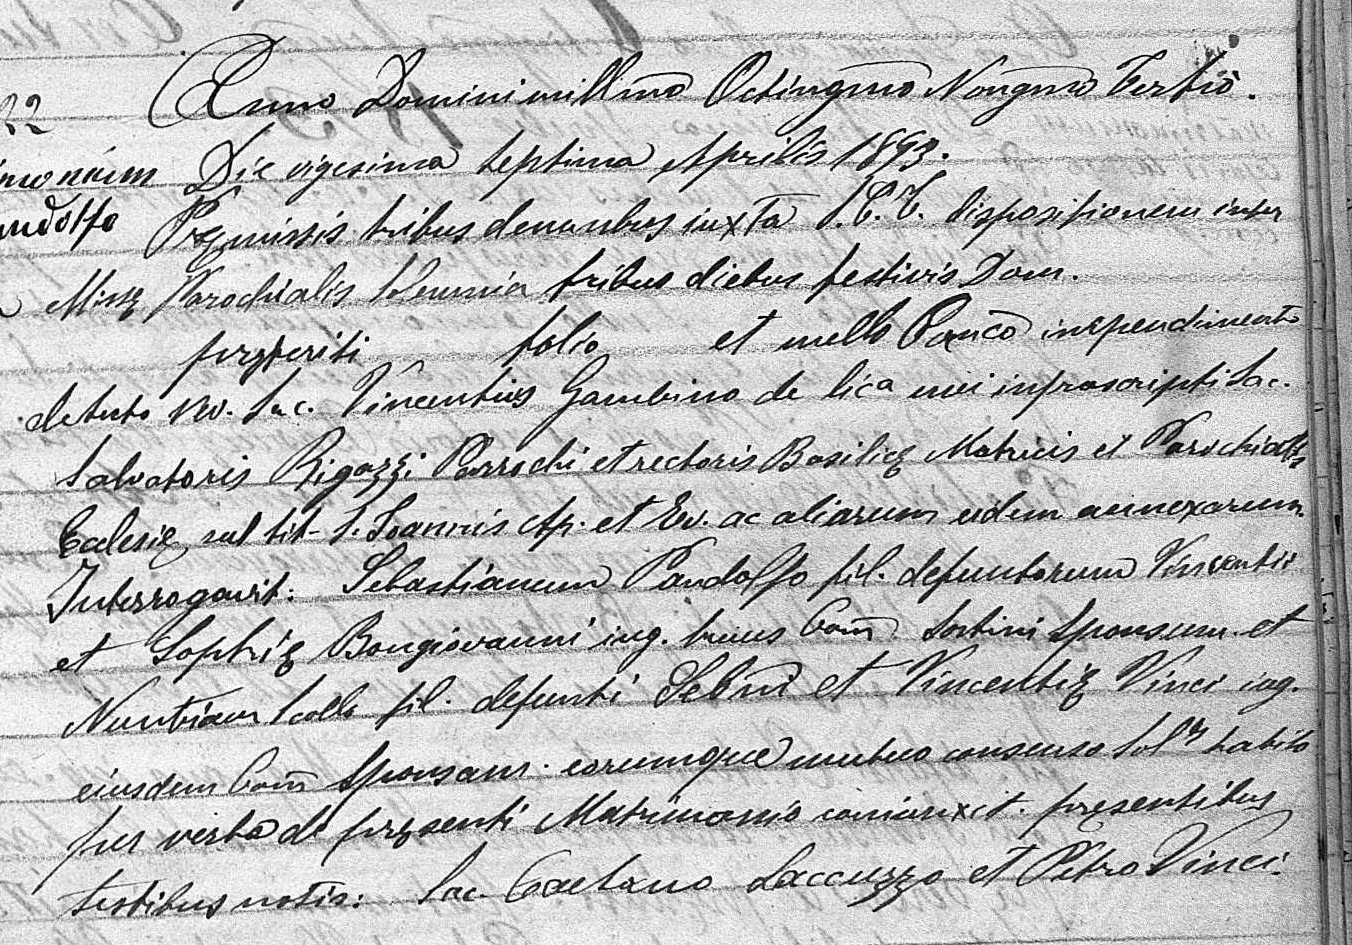 Anno Domini millmo Octingmo Nongmo Tertio.
22
Die vigesima septima Aprilis 1893.
Pręmissis tribus denunbus iuxta S.C.T. dispositionem inter
ndolfo
Missę Parochialis solemnia tribus diebus festivis Dom.
pręteriti folio et nullo Canco inpendimento
detecto Rev. Sac. Vincentius Gambino de lica mei infrascripti Sac.
Salvatoris Rigazzi Parrochi et rectoris Basilicę Matricis et Parochialis
Eclesię sub tit. S. Joannis Ap. et Ev. ac aliarum eidem annexarum
Interrogavit: Sebastianum Pandolfo fil. defuntorum Vincentii
et Sophię Bongiovanni iug. huius Com Sortini Sponsum et
Nuntiam Scolla fil. defunti Sebni et Vincentię Vinci iug.
eiusdem Com Sponsam. eorumque mutuo consenso habito
per verba de pręsenti Matrimonio coniunxit. pręsentibus
testibus notis: Sac. Gaetano Laccuzzo et Petro Vinci.